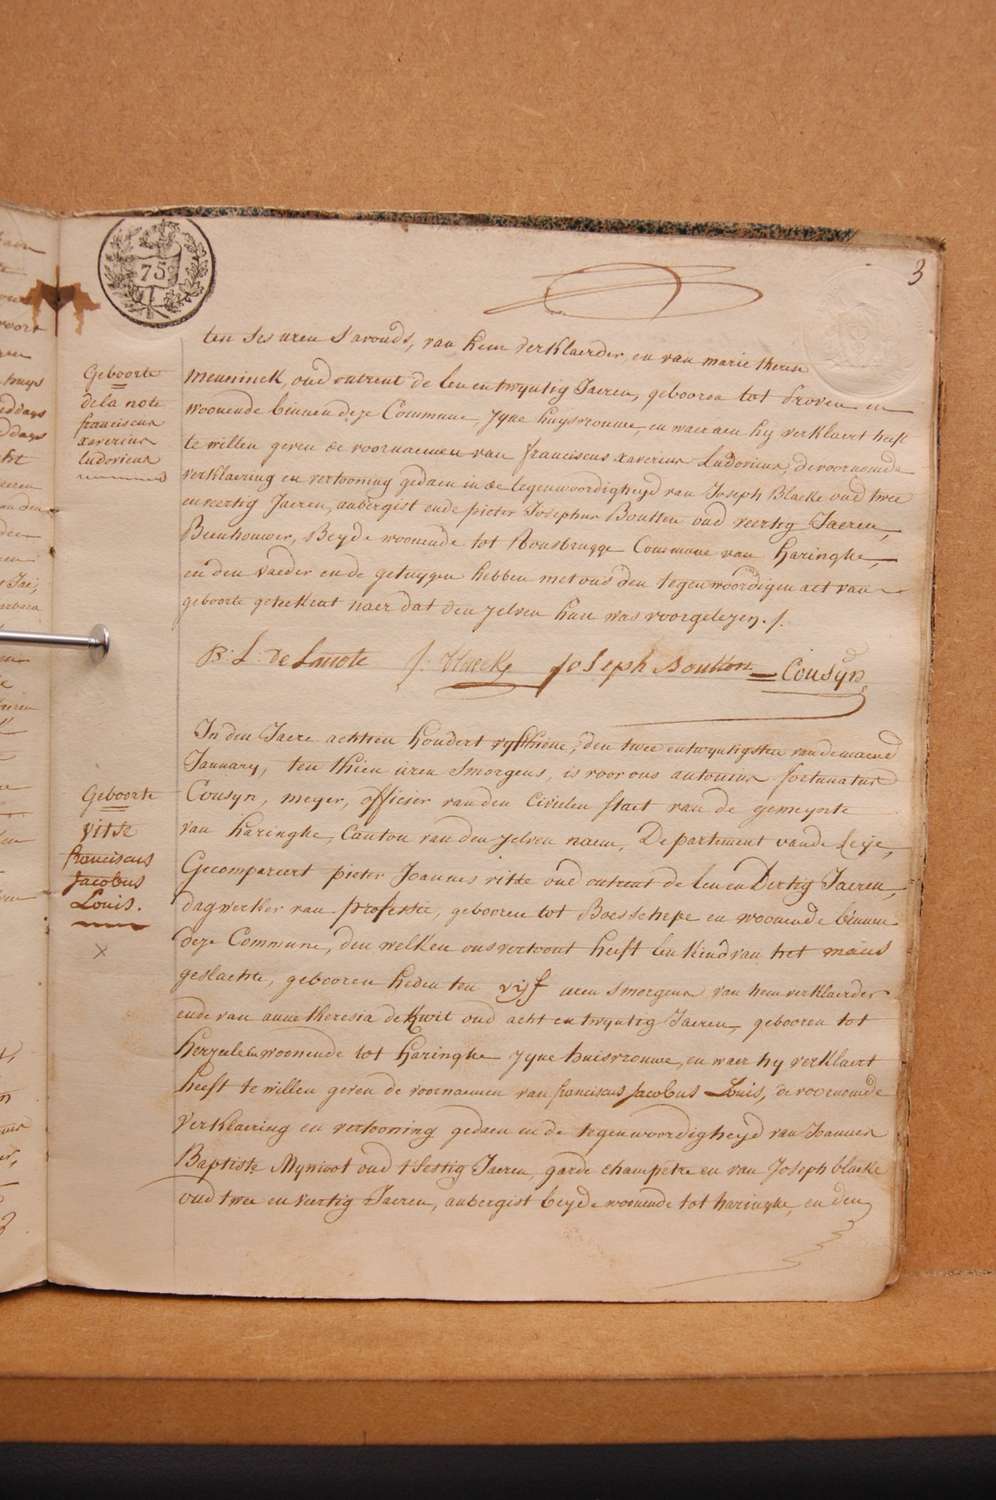 3
75
ten ses uren s avonds, van hem verklaerder en van marie therese
Geboorte
de la note
franciscus
xaverius
ludovicus
meuninck, oud ontrent de een en twyntig Jaeren, gebooren tot Proven en
woonende binnen deze Commune, zyne huysvrouwe, en waer aen hij verklaert heeft
te willen geven de voornaemen van franciscus xaverius Ludovicus, de voornoemde
verklaering en vertooning gedaen in de tegenwoordigheyd van Joseph Blaeke oud twee
en veertig Jaeren, aubergist ende pieter Josephus Boutten oud veertig Jaeren,
Beenhouwer, Beyde woonende tot Rousbrugge Commune van Haringhe,
en den vaeder en de getuygen hebben met ons den tegenwoordigen act van
geboorte geteekent naer dat den zelven hun was voorgelezen ./.
B: L. De Lanote J. Blaeke Joseph Boutten Cousyn
In den Jaere achtien hondert vyfthiene, den twee en twyntigsten van de maend
January, ten thien uren smorgens, is voor ons antonius fortunatus
Geboorte
vitse
franciscus
Jacobus
Louis.
x
Cousyn, meyer, officier van den civielen staet van de gemeynte
van haringhe, Canton van den zelven naem, Departement van de Leije,
Gecompareert pieter Joannes vitse oud ontrent de een en Dertig Jaeren,
dagwerker van professie, gebooren tot Boesschepe en woonende binnen
deze Commune, den welken ons vertoont heeft een kind van het mans
geslachte, gebooren heden ten vijf uren smorgens van hem verklaerder
ende van anne theresia deKwit oud acht en twyntig Jaeren, gebooren tot
herzeele woonende tot Haringhe zyne huisvrouwe, en waer hy verklaert
heeft te willen geven de voornaemen van franciscus Jacobus Louis, de voornoemde
verklaering en vertooning gedaen en de tegenwoordigheyd van Joannes
Baptiste Mynioot oud tsestig Jaeren, garde champetre en van Joseph blaeke
oud twee en veertig Jaeren, aubergist beyde woonende tot haringhe, en den